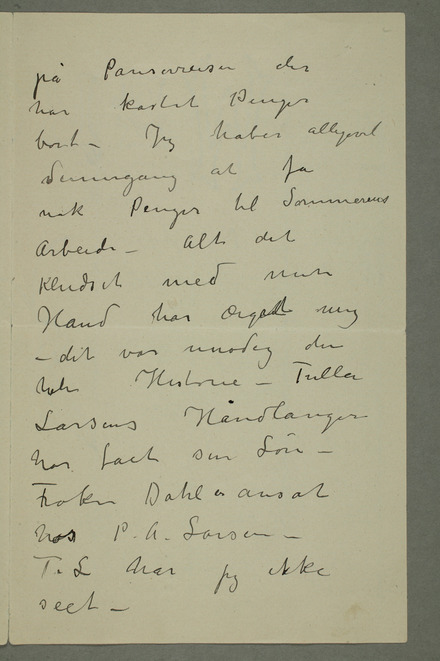 på Pariserreisen der
har kastet Penger
bort – Jeg haber alligevel
dennegang at få
nok Penger til Sommerens
Arbeide – Alt det
Kludset med min
Hånd har ærget mig
– det var unødig den
hele Historie – Tulla
Larsens Håndlanger
har faet sin Løn –
Frøken Dahl er ansat
hos P. A. Larsen –
T. L har jeg ikke
seet –